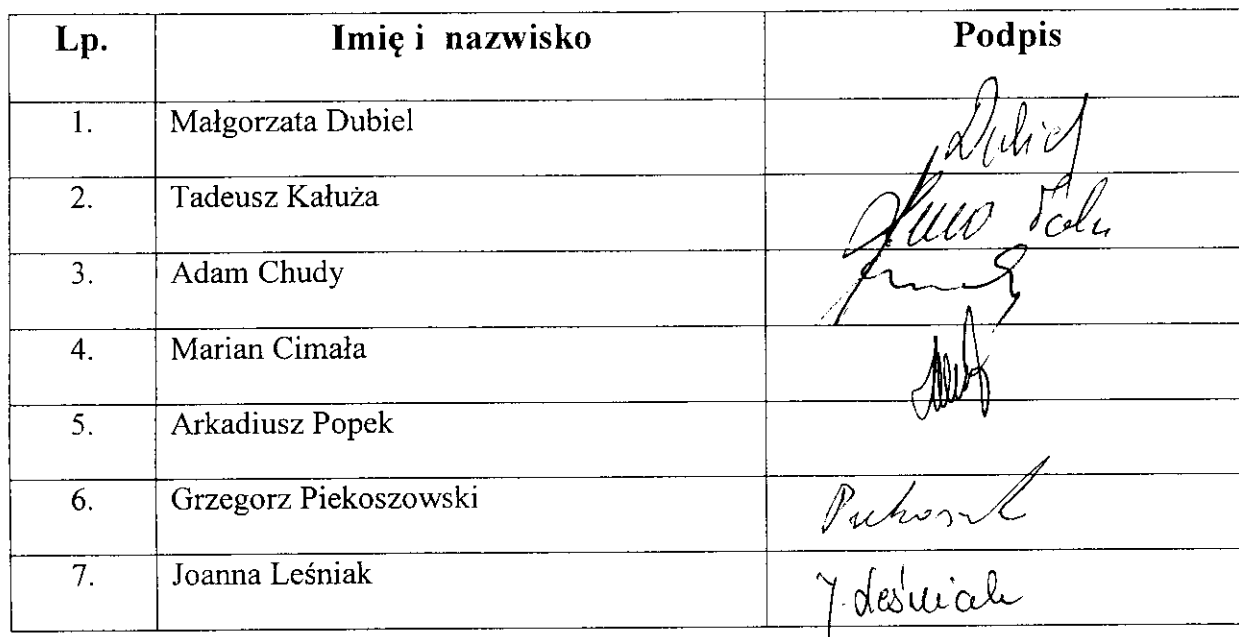 Lp. Imię i nazwisko Podpis
1. Małgorzata Dubiel Dubiel
2. Tadeusz Kałuża
3. Adam Chudy
4. Marian Cimała
5. Arkadiusz Popek
6. Grzegorz Piekoszowski
7. Joanna Leśniak J. Leśniak